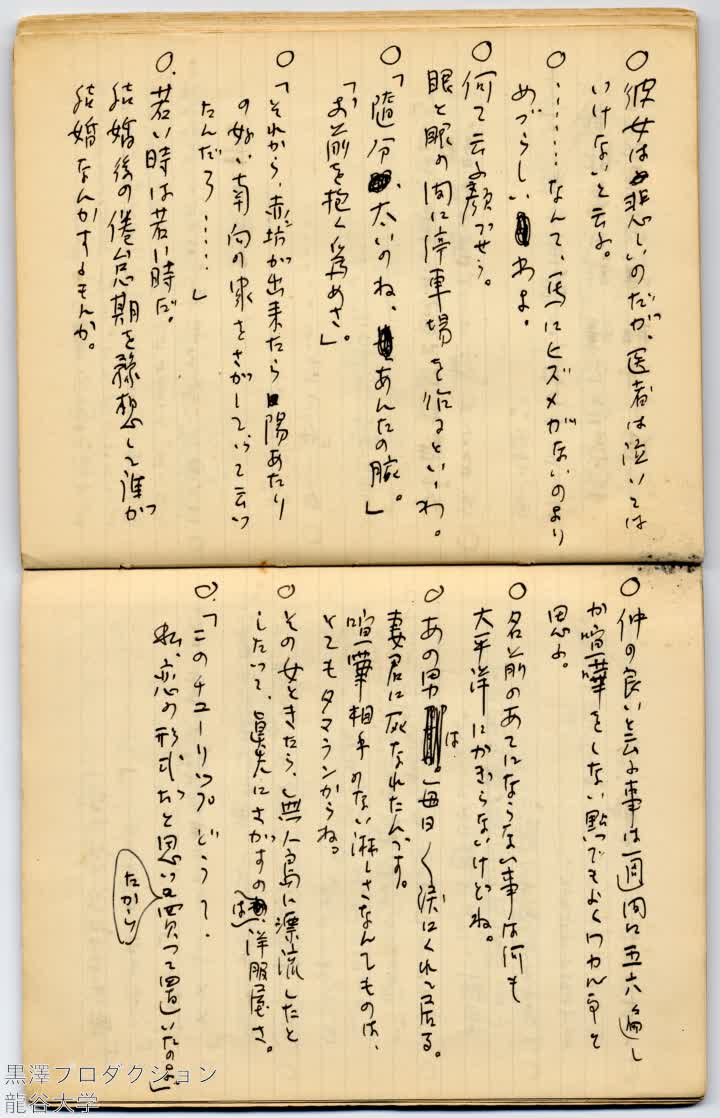 ○彼女は悲しいのだが、医者は泣いては
いけないと云ふ。
○……なんて、馬にヒズメがないのより
めづらしいわよ。
○何て云ふ顔でせう。
眼と眼の間に停車場を作るといーわ。
○「随分、太いのね、あんたの腕。」
「お前を抱く為めさ」。
○「それから、赤坊が出来たら陽あたり
の好い南向の家をさがしていて云つ
たんだろ……」
○.若い時は若い時だ。
結婚後の倦怠期を豫想して誰が
結婚なんかするもんか。
○仲の良いと云ふ事は一週間に五六遍し
か喧嘩をしない點でもよくワカル事と
思ふ。
○名前のあてにならない事は何も
大平洋にかぎらないけどね。
○あの男は。毎日く涙にくれて居る。
妻君に死なれたんです。
喧嘩相手のない淋しさなんてものは、
とてもタマランからね。
○その女ときたら、無人島に漂流したと
したつて、眞先にさがすのは、洋服屋さ。
○.「このチューリップどうって.
私、恋の形式だと思い買つて置いたのよ」
たから
黒澤プロダクション
龍谷大学